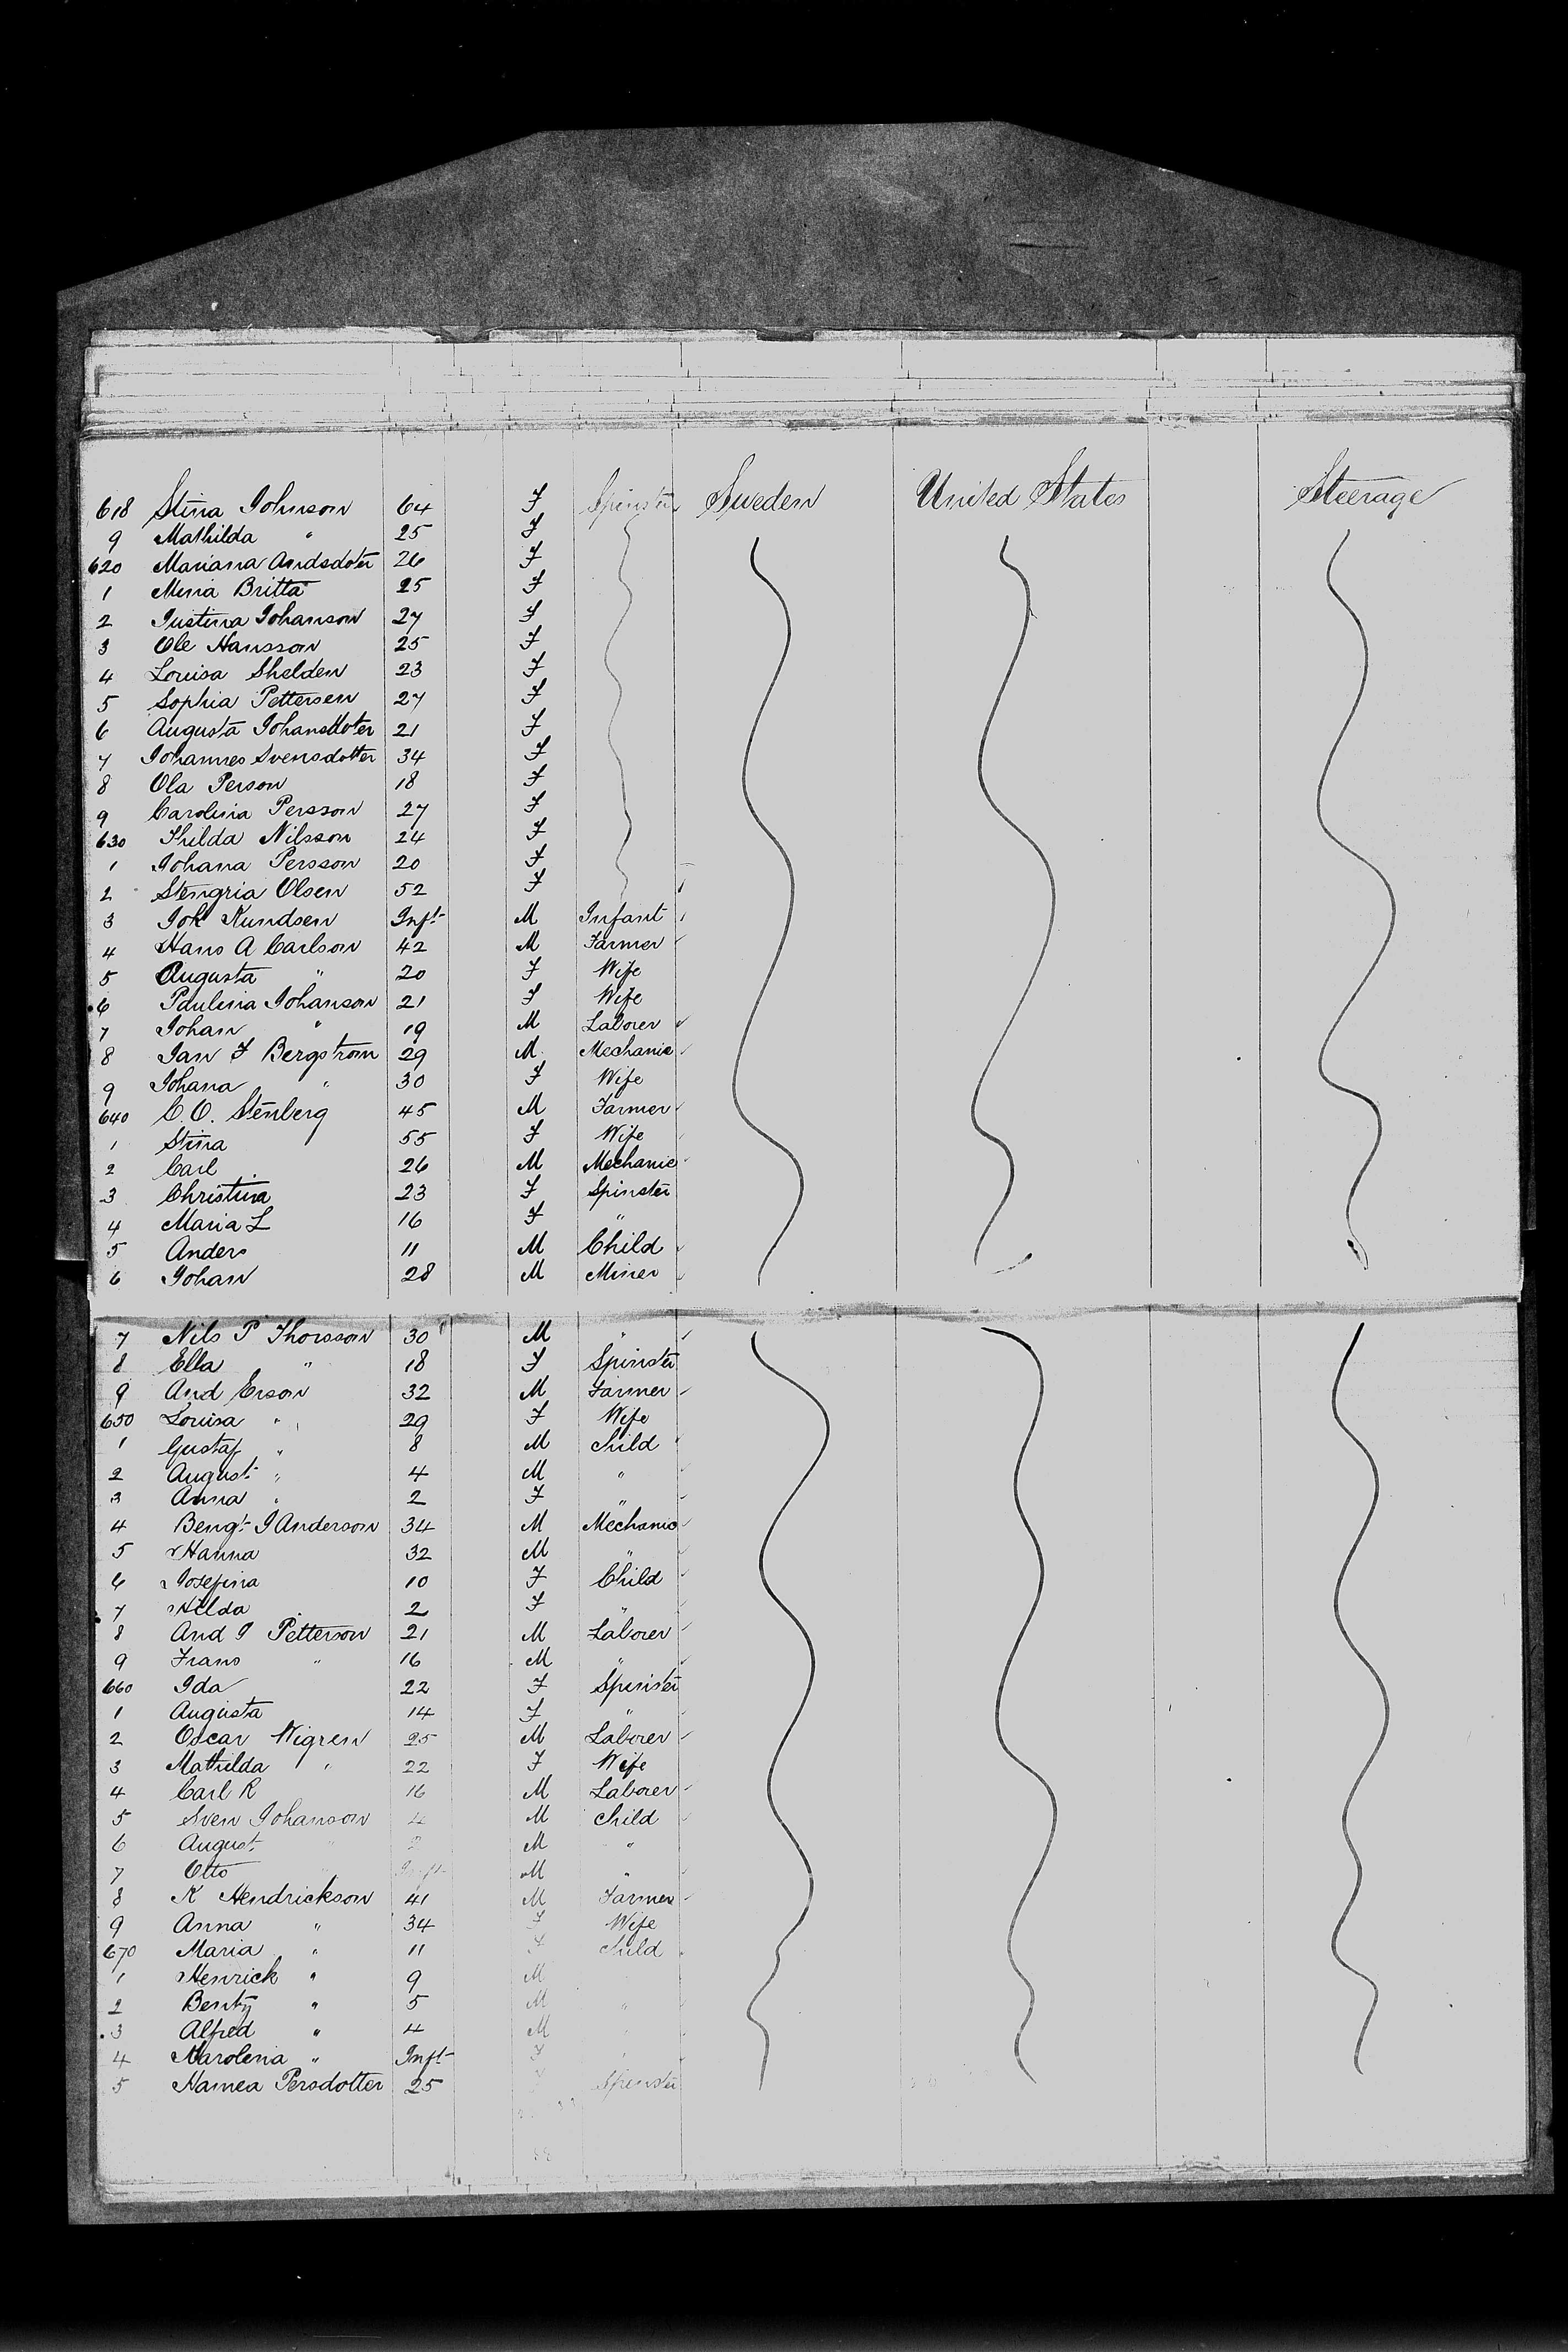 618 Stina Johnson 64 F Spinster Sweden United States Steerage
9 Mathilda " 25 F
620 Mariana Andsdoter 26 F
1 Mina Britta 25 F
2 Justina Johanson 27 F
3 Ole Hansson 25 F
4 Louisa Shelden 23 F
5 Sophia Pettersen 27 F
6 Augusta Johansdoter 21 F
7 Johannes Svensdotter 34 F
8 Ola Person 18 F
9 Carolina Persson 27 F
630 Thilda Nilsson 24 F
1 Johana Persson 20 F
2 Stengria Olsen 52 F
3 Joh Kundsen Inft M Infant
4 Hans A Carlson 42 M Farmer
5 Augusta " 20 F Wife
6 Paulina Johanson 21 F Wife
7 Johan " 19 M Laborer
8 Jan F Bergstrom 29 M Mechanic
9 Johana " 30 F Wife
640 C. O. Stenberg 45 M Farmer
1 Stina 55 F Wife
2 Carl 26 M Mechanic
3 Christina 23 F Spinster
4 Maria L 16 F "
5 Anders 11 M Child
6 Johan 28 M Miner
7 Nils P Thorsson 30 M "
8 Ella " 18 F Spinster
9 And Erson 32 M Farmer
650 Louisa " 29 F Wife
1 Gustaf " 8 M Child
2 August " 4 M "
3 Anna " 2 F "
4 Bengt J Anderson 34 M Mechanic
5 Hanna 32 M "
6 Josefina 10 F Child
7 Hilda 2 F "
8 And J Petterson 21 M Laborer
9 Frans " 16 M "
660 Ida 22 F Spinster
1 Augusta 14 F "
2 Oscar Wigren 25 M Laborer
3 Mathilda " 22 F Wife
4 Carl R 16 M Laborer
5 Sven Johanson 4 M Child
6 August " 2 M "
7 Otto " Inft M "
8 K Hendrickson 41 M Farmer
9 Anna " 34 F Wife
670 Maria " 11 F Child
1 Henrick " 9 M
2 Benty " 5 M "
3 Alfred " 4 M "
4 Karolena " Inft F "
5 Hamea Persdotter 25 F Spinster